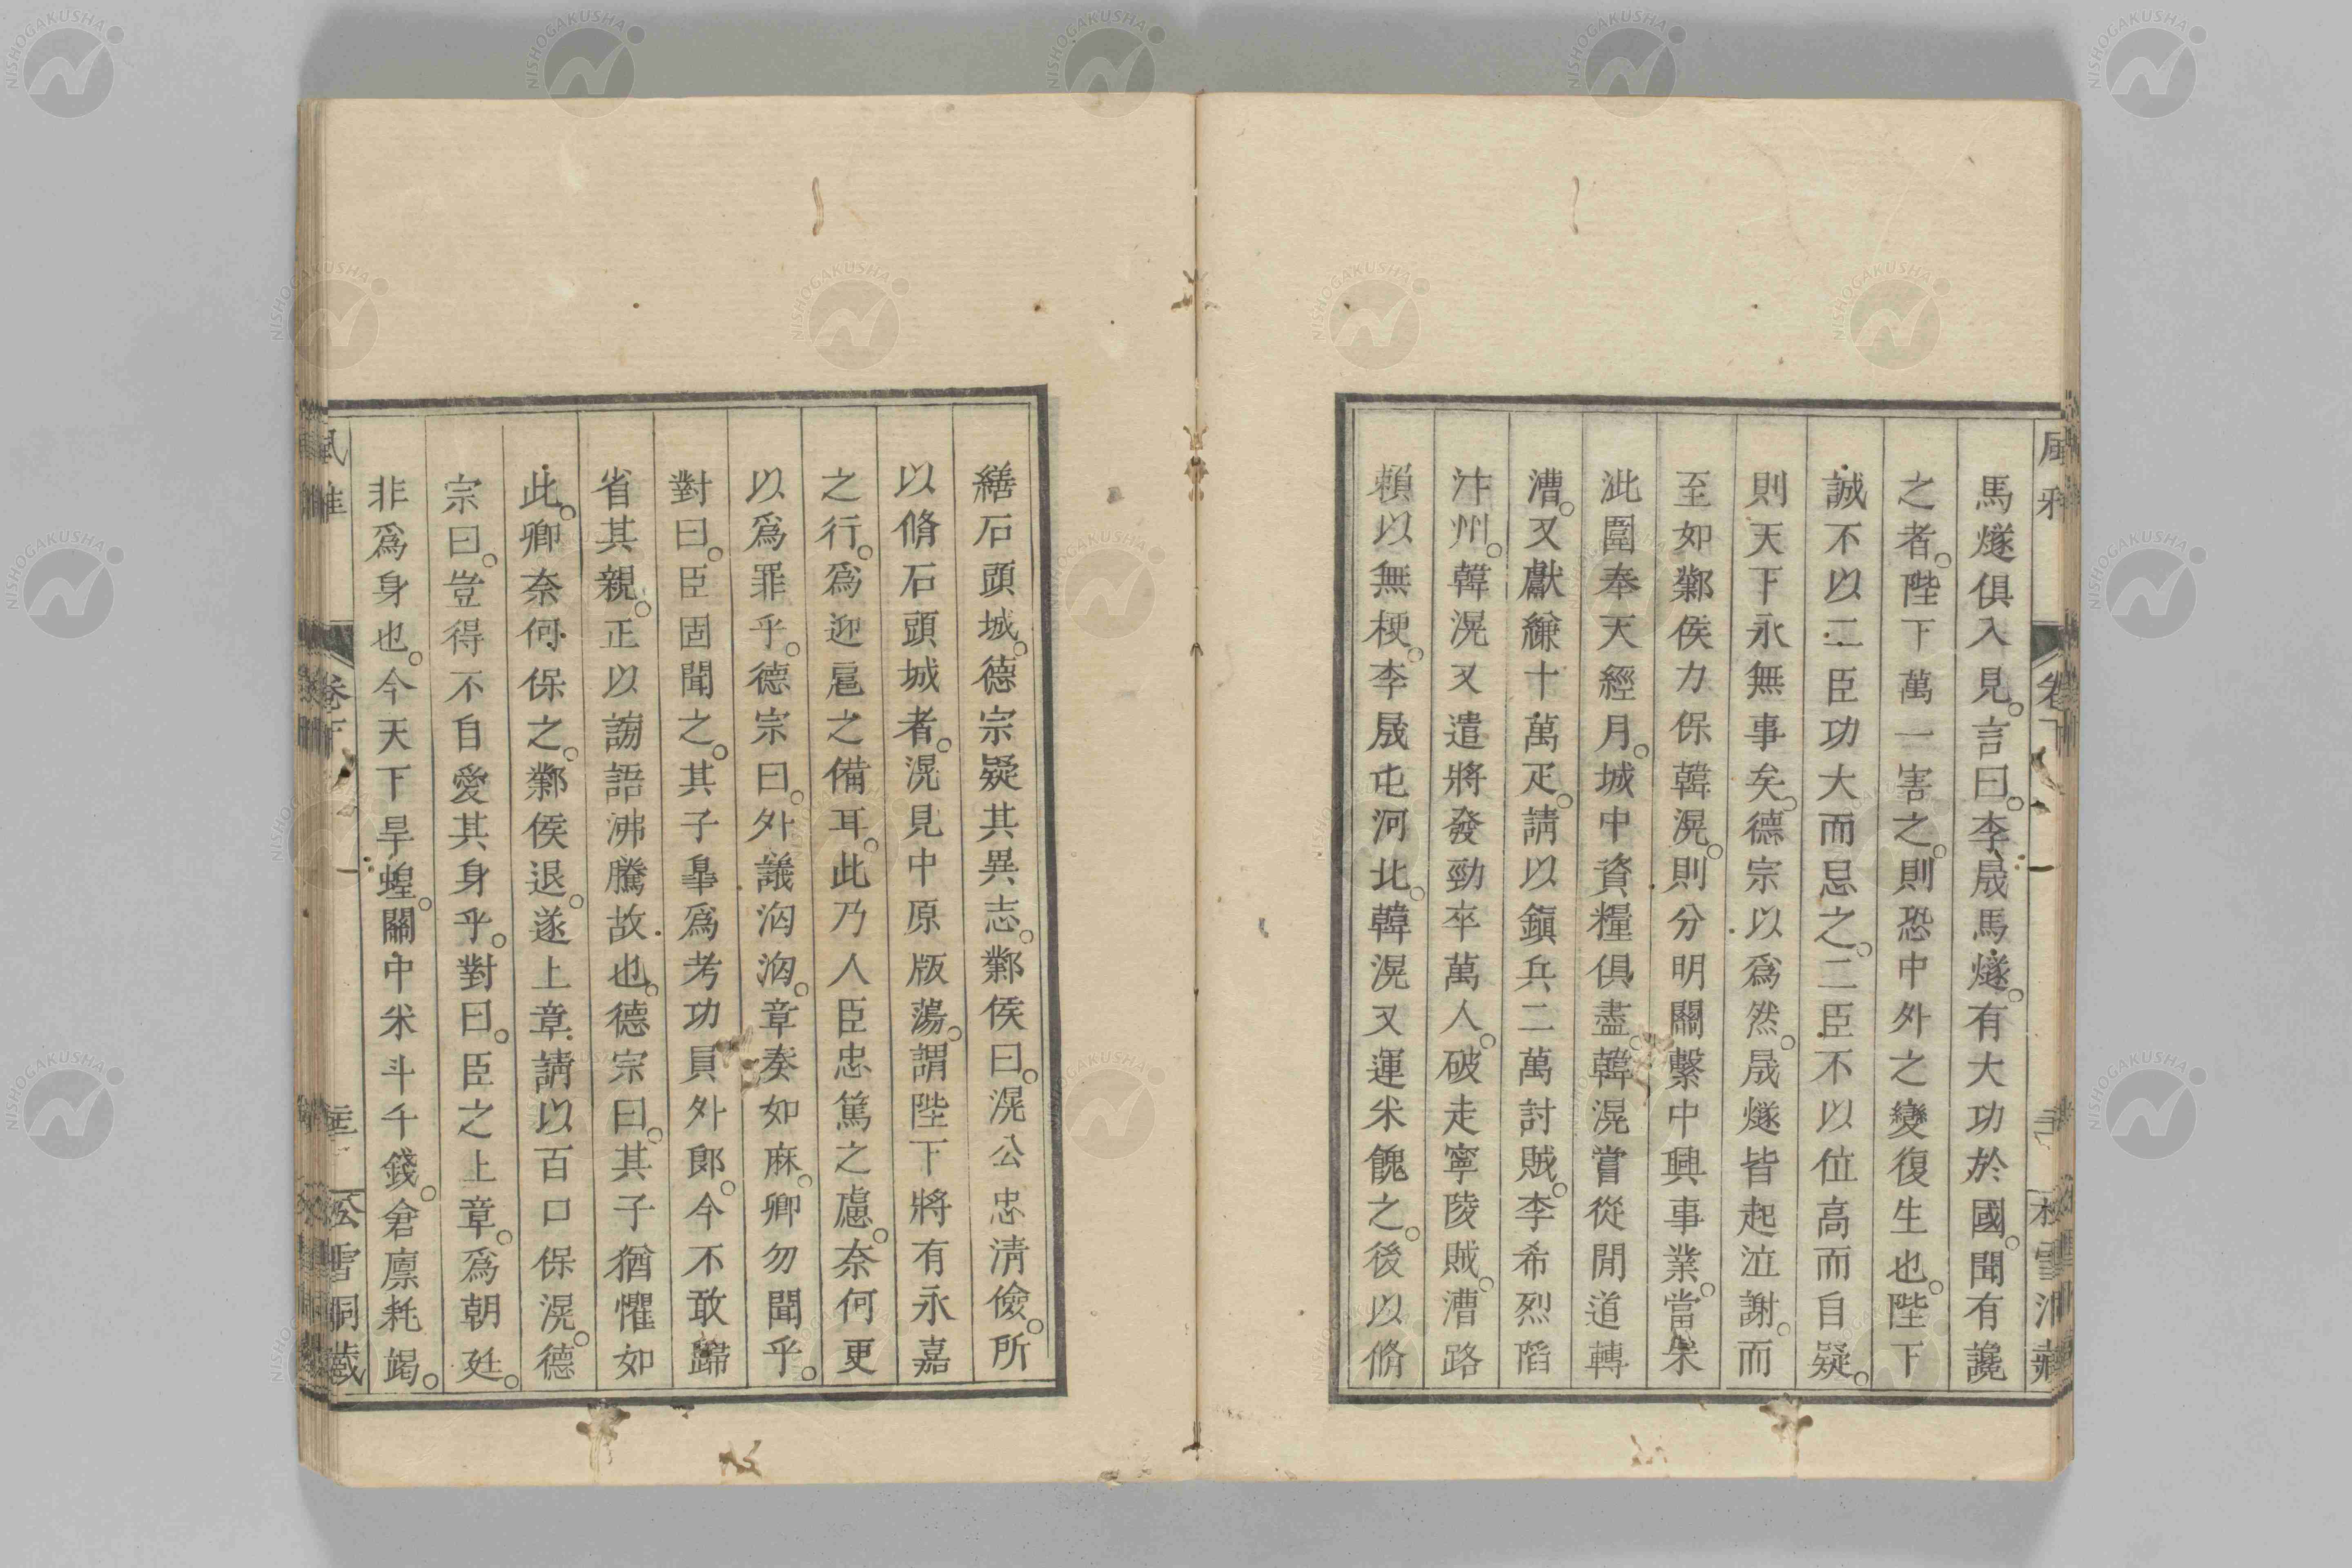 馬燧俱入見。言曰。李晟馬燧。有大功於國。聞有讒
之者。陛下萬一害之。則恐中外之變復生也。陛下
誠不以二臣功大而忌之。二臣不以位高而自疑。
則天下永無事矣。德宗以爲然。晟燧皆起泣謝。而
至如鄴侯力保韓滉。則分明關繫中興事業。當朱
泚圍奉天經月。城中資糧俱盡。韓滉嘗從間道轉
漕。又獻縑十萬疋。請以鎮兵二萬討賊。李希烈陷
汴州。韓滉又遣將發勁卒萬人。破走寧陵賊。漕路
賴以無梗。李晟屯河北。韓滉又運米餽之。後以脩
繕石頭城。德宗疑其異志。鄴侯曰。滉公忠清儉。所
以脩石頭城者。滉見中原版蕩。謂陛下將有永嘉
之行。爲迎扈之備耳。此乃人臣忠篤之慮。奈何更
以爲罪乎。德宗曰。外議洶洶。章奏如麻。卿勿聞乎。
對曰。臣固聞之。其子皐爲考功員外郎。今不敢歸
省其親。正以謗語沸騰故也。德宗曰。其子猶懼如
此。卿奈何保之。鄴侯退。遂上章。請以百口保滉。德
宗曰。豈得不自愛其身乎。對曰。臣之上章。爲朝廷。
非爲身也。今天下旱蝗。關中米斗千錢。倉廩耗竭。
卷下
松雪洞藏